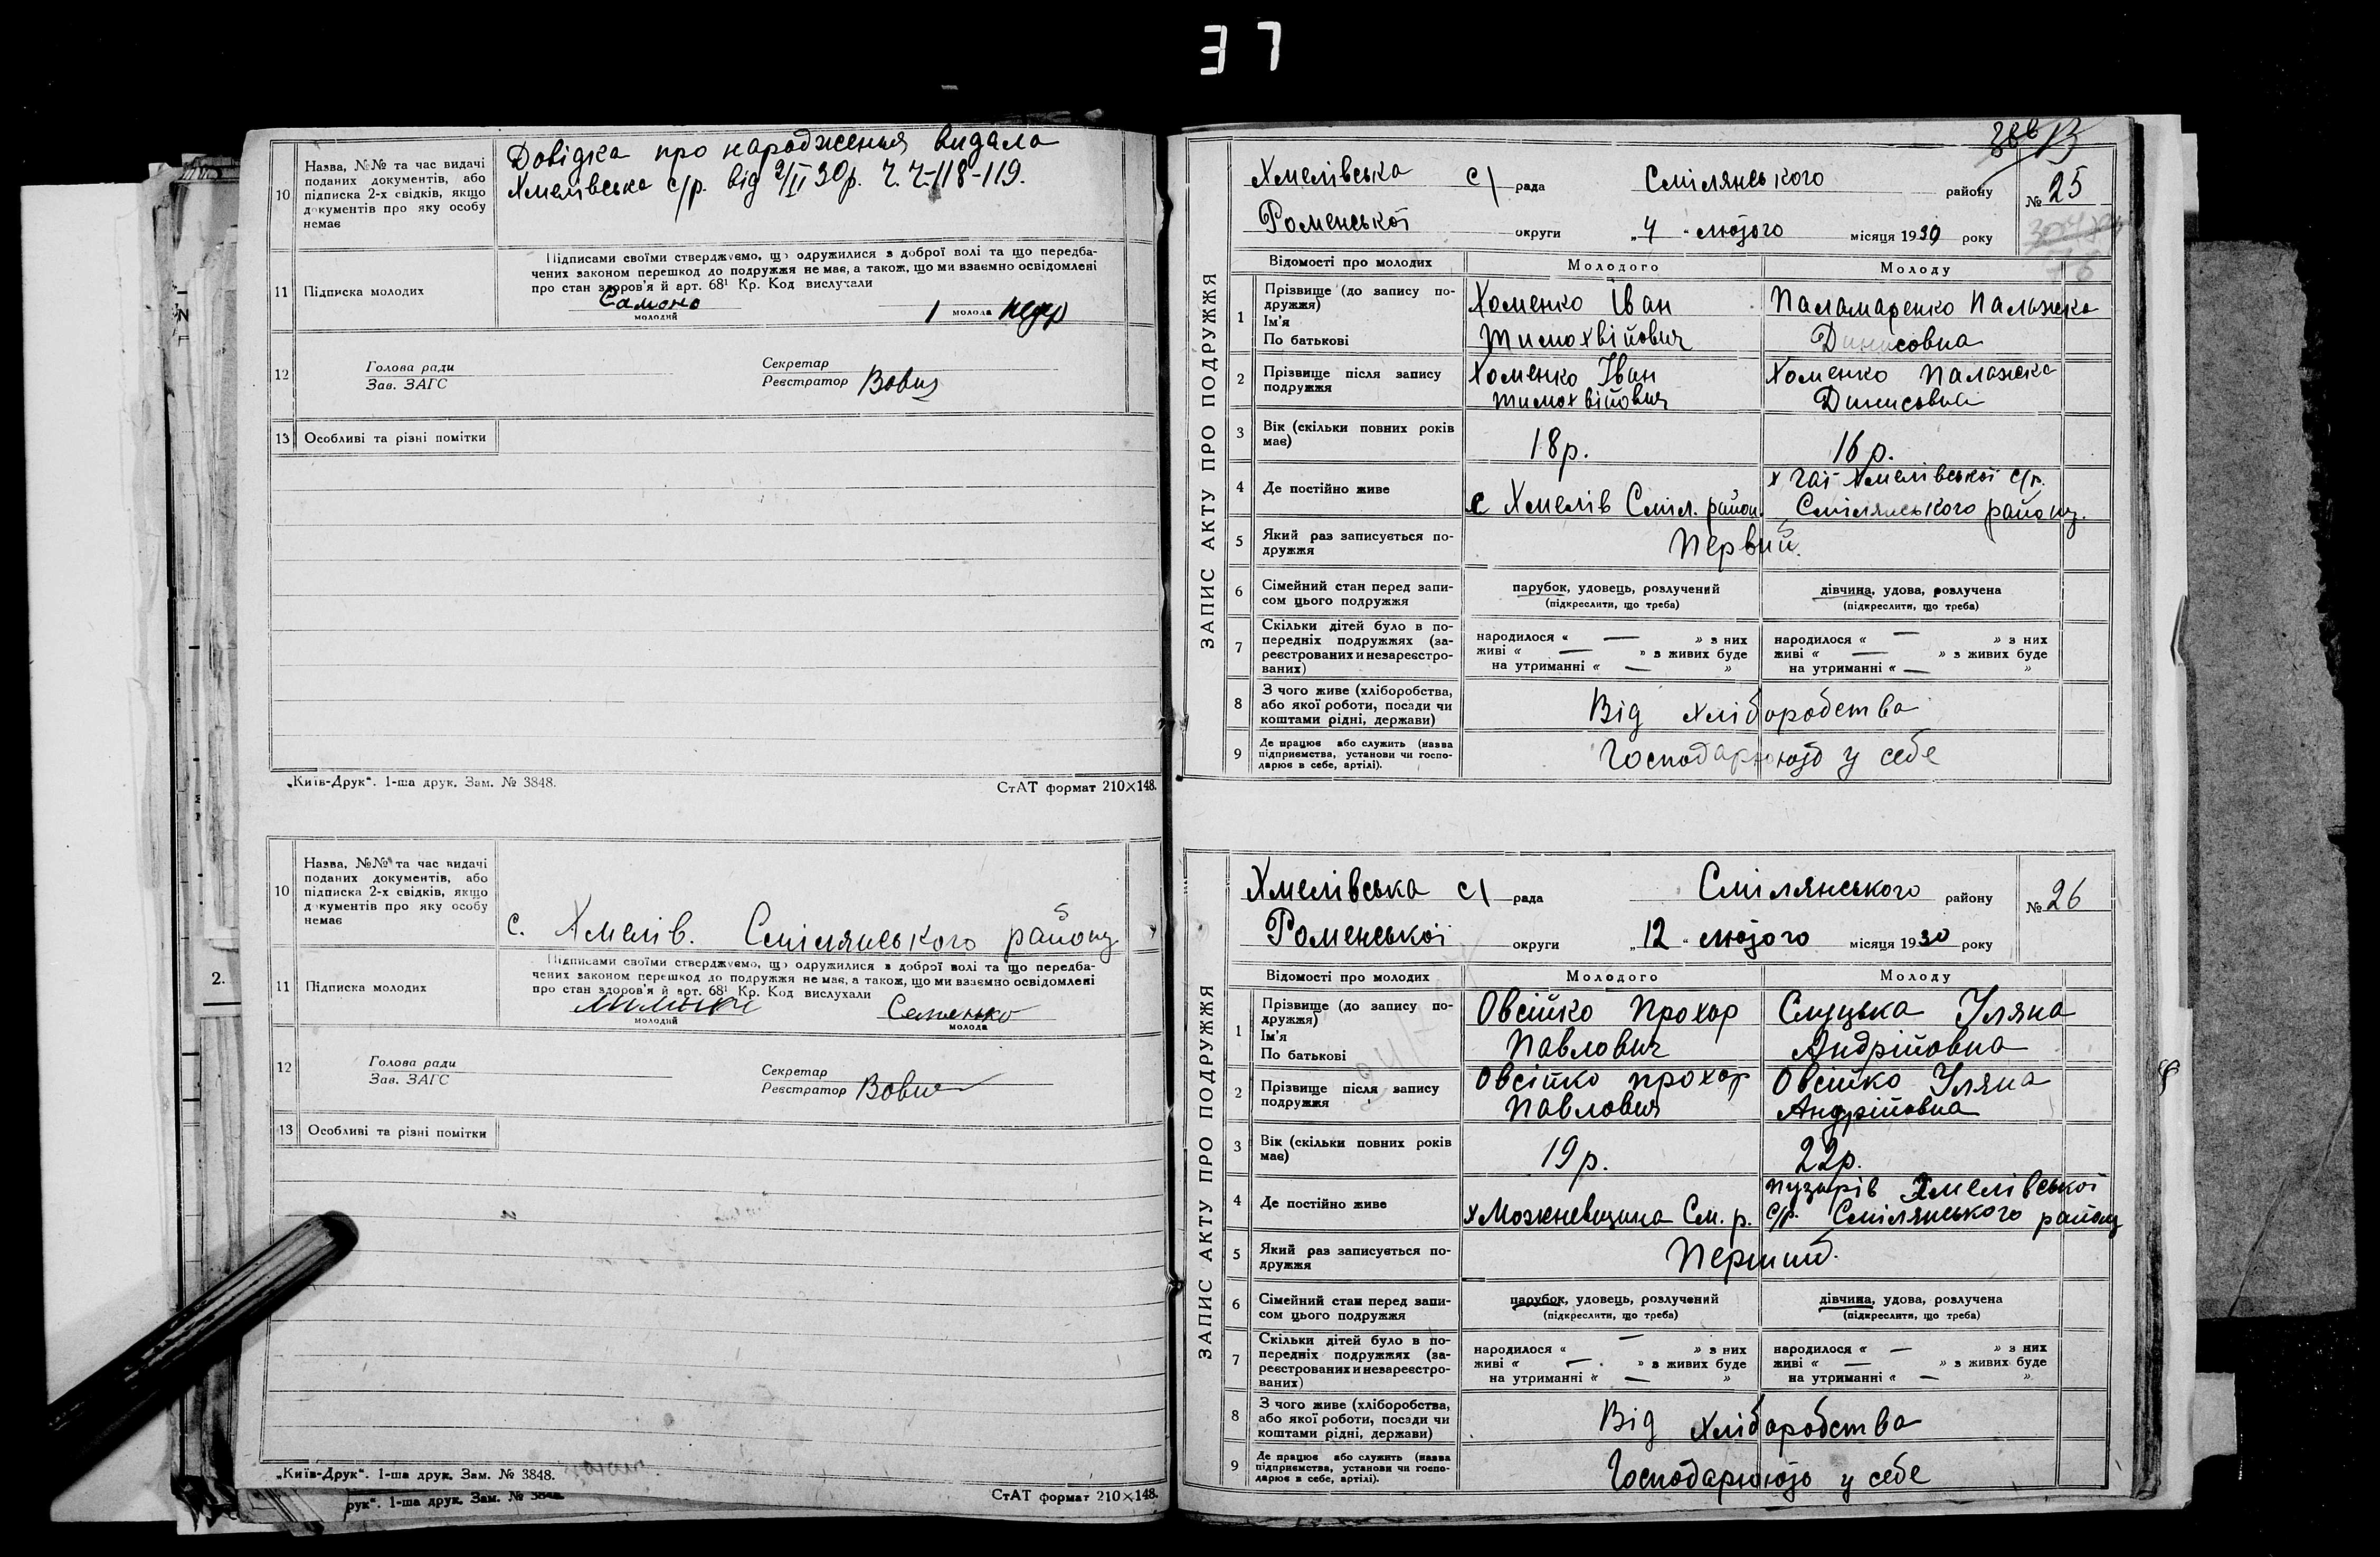 37
10 Назва, №№ та час видачі
поданих документів, або
підписка 2-х свідків, якщо
документів про яку особу
немає
Довідка про народження видала
Хмелівська с/р. від 2/II 30р. Ч. Ч-118-119.
11 Підписка молодих
Підписами своїми стверджуємо, що одружилися з доброї волі та що передба-
чених законом перешкод до подружжя не має, а також, що ми взаємно освідомлені
про стан здоров'я й арт. 68¹ Кр. Код вислухали
молодий
молода
12 Голова ради
Зав. ЗАГС
Секретар
Реєстратор
13 Особливі та різні помітки
„Київ-Друк“. 1-ша друк. Зам. № 3848.
СтАТ формат 210×148.
10 Назва, №№ та час видачі
поданих документів, або
підписка 2-х свідків, якщо
документів про яку особу
немає
с. Хмелів. Смілянського району
11 Підписка молодих
Підписами своїми стверджуємо, що одружилися з доброї волі та що передба-
чених законом перешкод до подружжя не має, а також, що ми взаємно освідомлені
про стан здоров'я й арт. 68¹ Кр. Код вислухали
молодий
Семенько
молода
12 Голова ради
Зав. ЗАГС
Секретар
Реєстратор
13 Особливі та різні помітки
2.
„Київ-Друк“. 1-ша друк. Зам. № 3848.
СтАТ формат 210×148.
рук“. 1-ша друк. Зам. № 3848.
ЗАПИС АКТУ ПРО ПОДРУЖЖЯ
Хмелівська с/ рада Смілянського району
№ 25
Роменської округи „4“ лютого місяця 1930 року
Відомості про молодих Молодого Молоду
1 Прізвище (до запису по-
дружжя)
Ім'я
По батькові
Хоменко Іван
Тимохвійович
Паламаренко Палажка
Динисовна
2 Прізвище після запису
подружжя
Хоменко Іван
Тимохвійович
Хоменко Палажка
Динисовна
3 Вік (скільки повних років
має)
18р.
16р.
4 Де постійно живе
с Хмелів Сміл. район.
х Гаї Хмелівської с/р.
Смілянського району.
5 Який раз записується по-
дружжя
Первий.
6 Сімейний стан перед запи-
сом цього подружжя
парубок, удовець, розлучений
(підкреслити, що треба)
дівчина, удова, розлучена
(підкреслити, що треба)
7 Скільки дітей було в по-
передніх подружжях (за-
реєстрованих и незареєстро-
ваних)
народилося « — » з них
живі « — » з живих буде
на утриманні « — »
народилося « — » з них
живі « — » з живих буде
на утриманні « — »
8 З чого живе (хліборобства,
або якої роботи, посади чи
коштами рідні, держави)
Від хліборобства
9 Де працює або служить (назва
підприємства, установи чи госпо-
дарює в себе, артілі).
Господарюють у себе
ЗАПИС АКТУ ПРО ПОДРУЖЖЯ
Хмелівська с/ рада Смілянського району
№ 26
Роменської округи „12“ лютого місяця 1930 року
Відомості про молодих Молодого Молоду
1 Прізвище (до запису по-
дружжя)
Ім'я
По батькові
Овсійко Прохор
Павлович
Слуцька Уляна
Андрійовна
2 Прізвище після запису
подружжя
Овсійко Прохор
Павлович
Овсійко Уляна
Андрійовна
3 Вік (скільки повних років
має)
19р.
22р.
4 Де постійно живе
х Можневщина См. р.
Пузирів Хмелівської
с/р. Смілянського району
5 Який раз записується по-
дружжя
Перший.
6 Сімейний стан перед запи-
сом цього подружжя
парубок, удовець, розлучений
(підкреслити, що треба)
дівчина, удова, розлучена
(підкреслити, що треба)
7 Скільки дітей було в по-
передніх подружжях (за-
реєстрованих и незареєстро-
ваних)
народилося « — » з них
живі « — » з живих буде
на утриманні « — »
народилося « — » з них
живі « — » з живих буде
на утриманні « — »
8 З чого живе (хліборобства,
або якої роботи, посади чи
коштами рідні, держави)
Від хліборобства
9 Де працює або служить (назва
підприємства, установи чи госпо-
дарює в себе, артілі).
Господарюють у себе